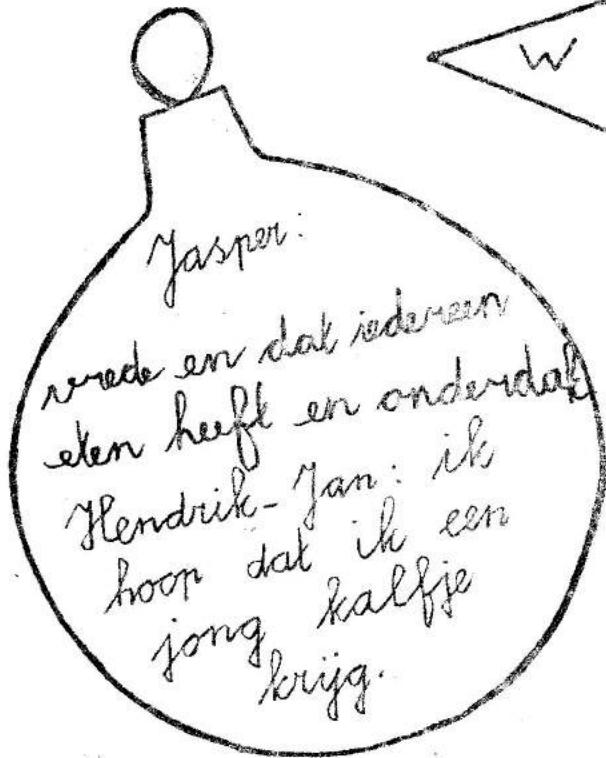 W
Jasper:
vrede en dat iedereen
eten heeft en onderdak
Hendrik-Jan: ik
hoop dat ik een
jong kalfje
krijg.